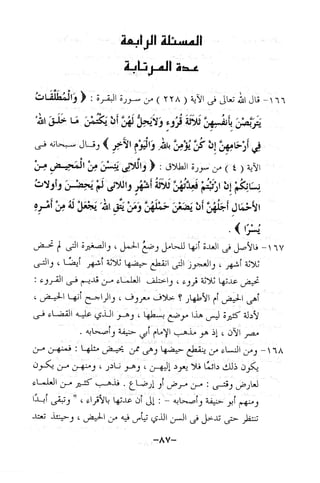 المسئلة الرابعة
عدة المرتابة
١٦٦- قال الله تعالى في الآية ( ٢٢٨ ) من سورة البقرة : ﴿ وَالْمُطَلَّقَاتُ
يَتَرَبَّصْنَ بِأَنْفُسِهِنَّ ثَلاَثَةَ قُرُوءٍ وَلاَيَحِلُّ لَهُنَّ أَنْ يَكْتُمْنَ مَا خَلَقَ اللهُ
فِي أَرْحَامِهِنَّ إِنْ كُنَّ يُؤْمِنَّ بِاللهِ وَالْيَوْمِ الآخِرِ ﴾ وقال سبحانه فى
الآية ( ٤ ) من سورة الطلاق : ﴿ وَاللاَّئِى يَئِسْنَ مِنَ الْمَحِيضِ مِنْ
نِسَائِكُمْ إِنْ ارْتَبْتُمْ فَعِدَّتُهُنَّ ثَلاَثَةُ أَشْهُرٍ وَاللاَّئِى لَمْ يَحِضْنَ وَأُولاَتُ
الأَحْمَالِ أَجَلُهُنَّ أَنْ يَضَعْنَ حَمْلَهُنَّ وَمَنْ يَتَّقِ اللهَ يَجْعَلْ لَهُ مِنْ أَمْرِهِ
يُسْرًا ﴾ .
١٦٧- فالأصل فى العدة أنها للحامل وضعُ الحمل ، والصغيرة التى لم تحض
ثلاثة أشهر ، والعجوز التى انقطع حيضها ثلاثة أشهر أيضًا ، والتى
تحيض عدتها ثلاثة قروء ، واختلف العلماء من قديم فى القروء :
أهى الحيض أم الأطهار ؟ خلاف معروف ، والراجح أنها الحيض ،
لأدلة كثيرة ليس هذا موضع بسطها ، وهو الذى عليه القضاء فى
مصر الآن ، إذ هو مذهب الإمام أبي حنيفة وأصحابه .
١٦٨- ومن النساء من ينقطع حيضها وهى ممن يحيض مثلها : فمنهن من
يكون ذلك دائمًا فلا يعود إليهن ، وهو نادر ، ومنهن من يكون
لعارض وقتى : من مرض أو إرضاع . فذهب كثير من العلماء
ومنهم أبو حنيفة وأصحابه - : إلى أن عدتها بالأقراء ، وتبقى أبدًا
تنتظر حتى تدخل فى السن الذى تيأس فيه من الحيض ، وحينئذ تعتد
-٨٧-